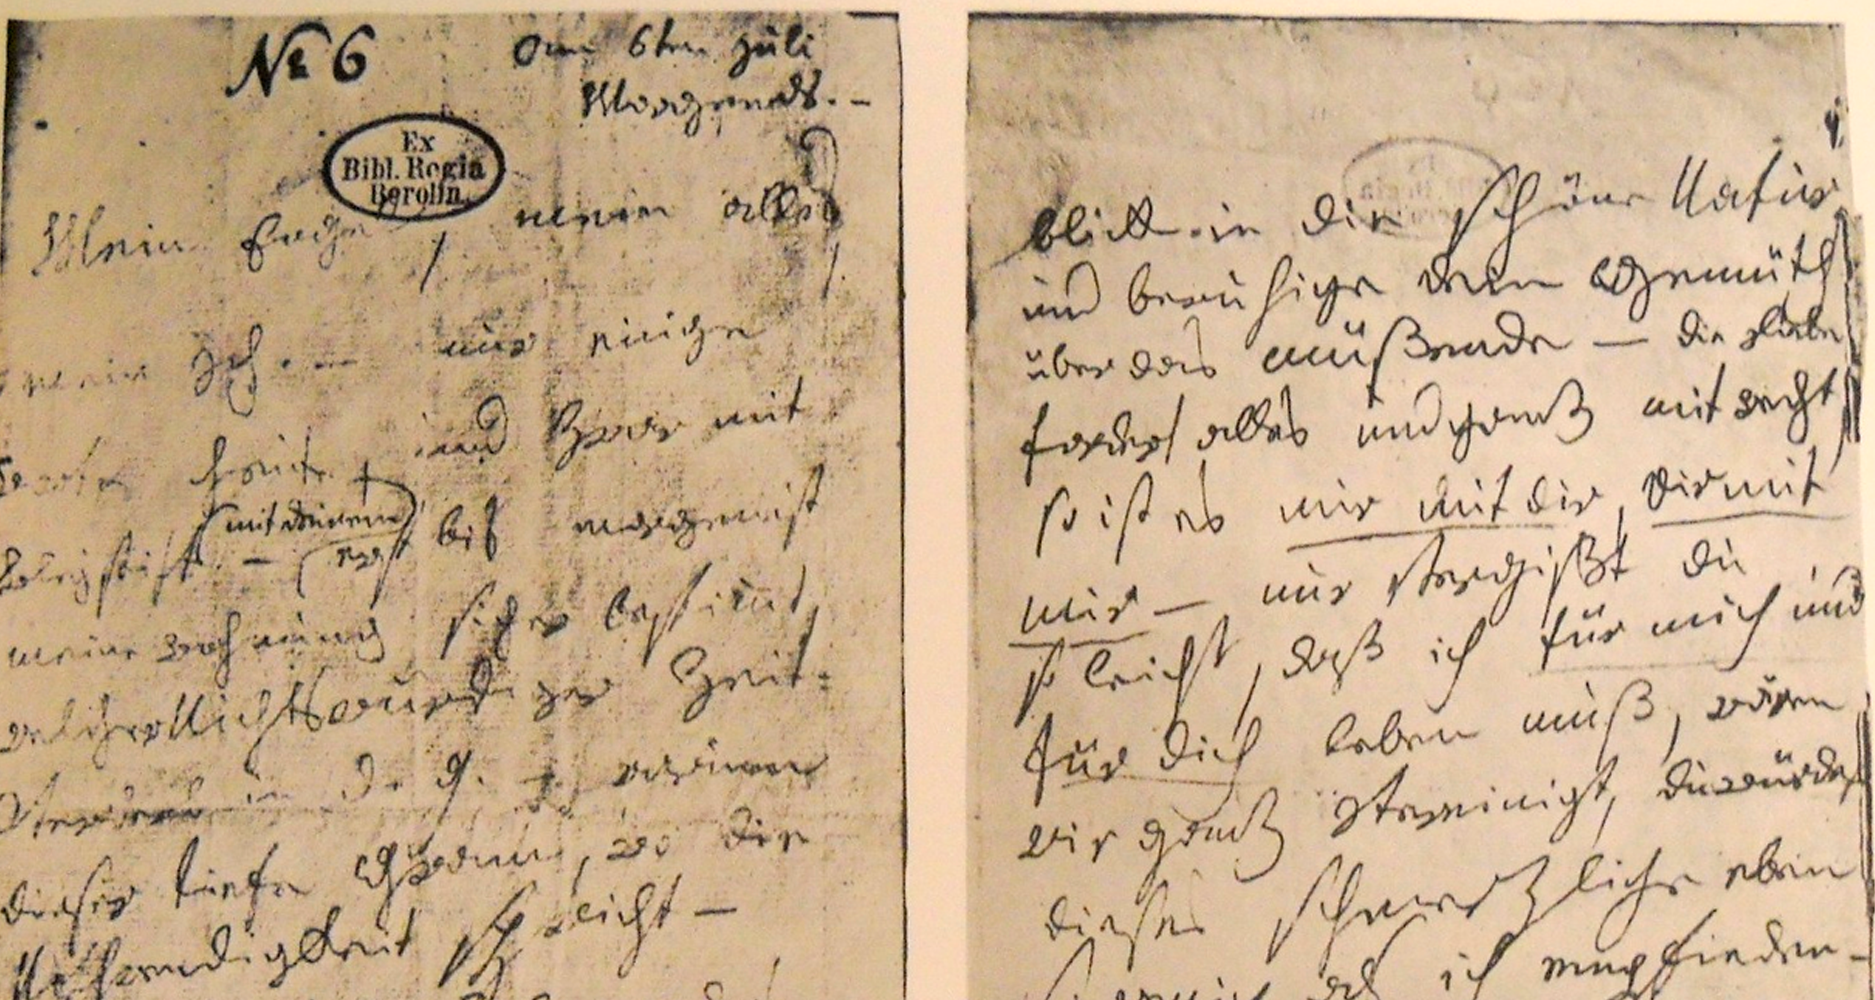 № 6
am 6ten Juli
Morgends. —
Ex
Bibl. Regia
Berolin.
Mein Engel, mein alles,
mein Ich. — nur einige
Worte heute, und zwar mit
Bleystift — (mit deinem) erst bis morgen ist
meine wohnung sicher bestimmt,
welcher Nichtswürdiger Zeit=
Verderb in d. g. — warum
dieser tiefe Gram, wo die
Nothwendigkeit spricht —
blick in die schöne Natur
und beruhige dein Gemüth
über das müßende — die Liebe
fordert alles und ganz mit recht,
so ist es mir mit dir, dir mit
mir — nur vergißt du
so leicht, daß ich für mich und
für dich leben muß, wären
wir ganz vereinigt, du würdest
dieses schmerzliche eben
so wenig als ich empfinden —